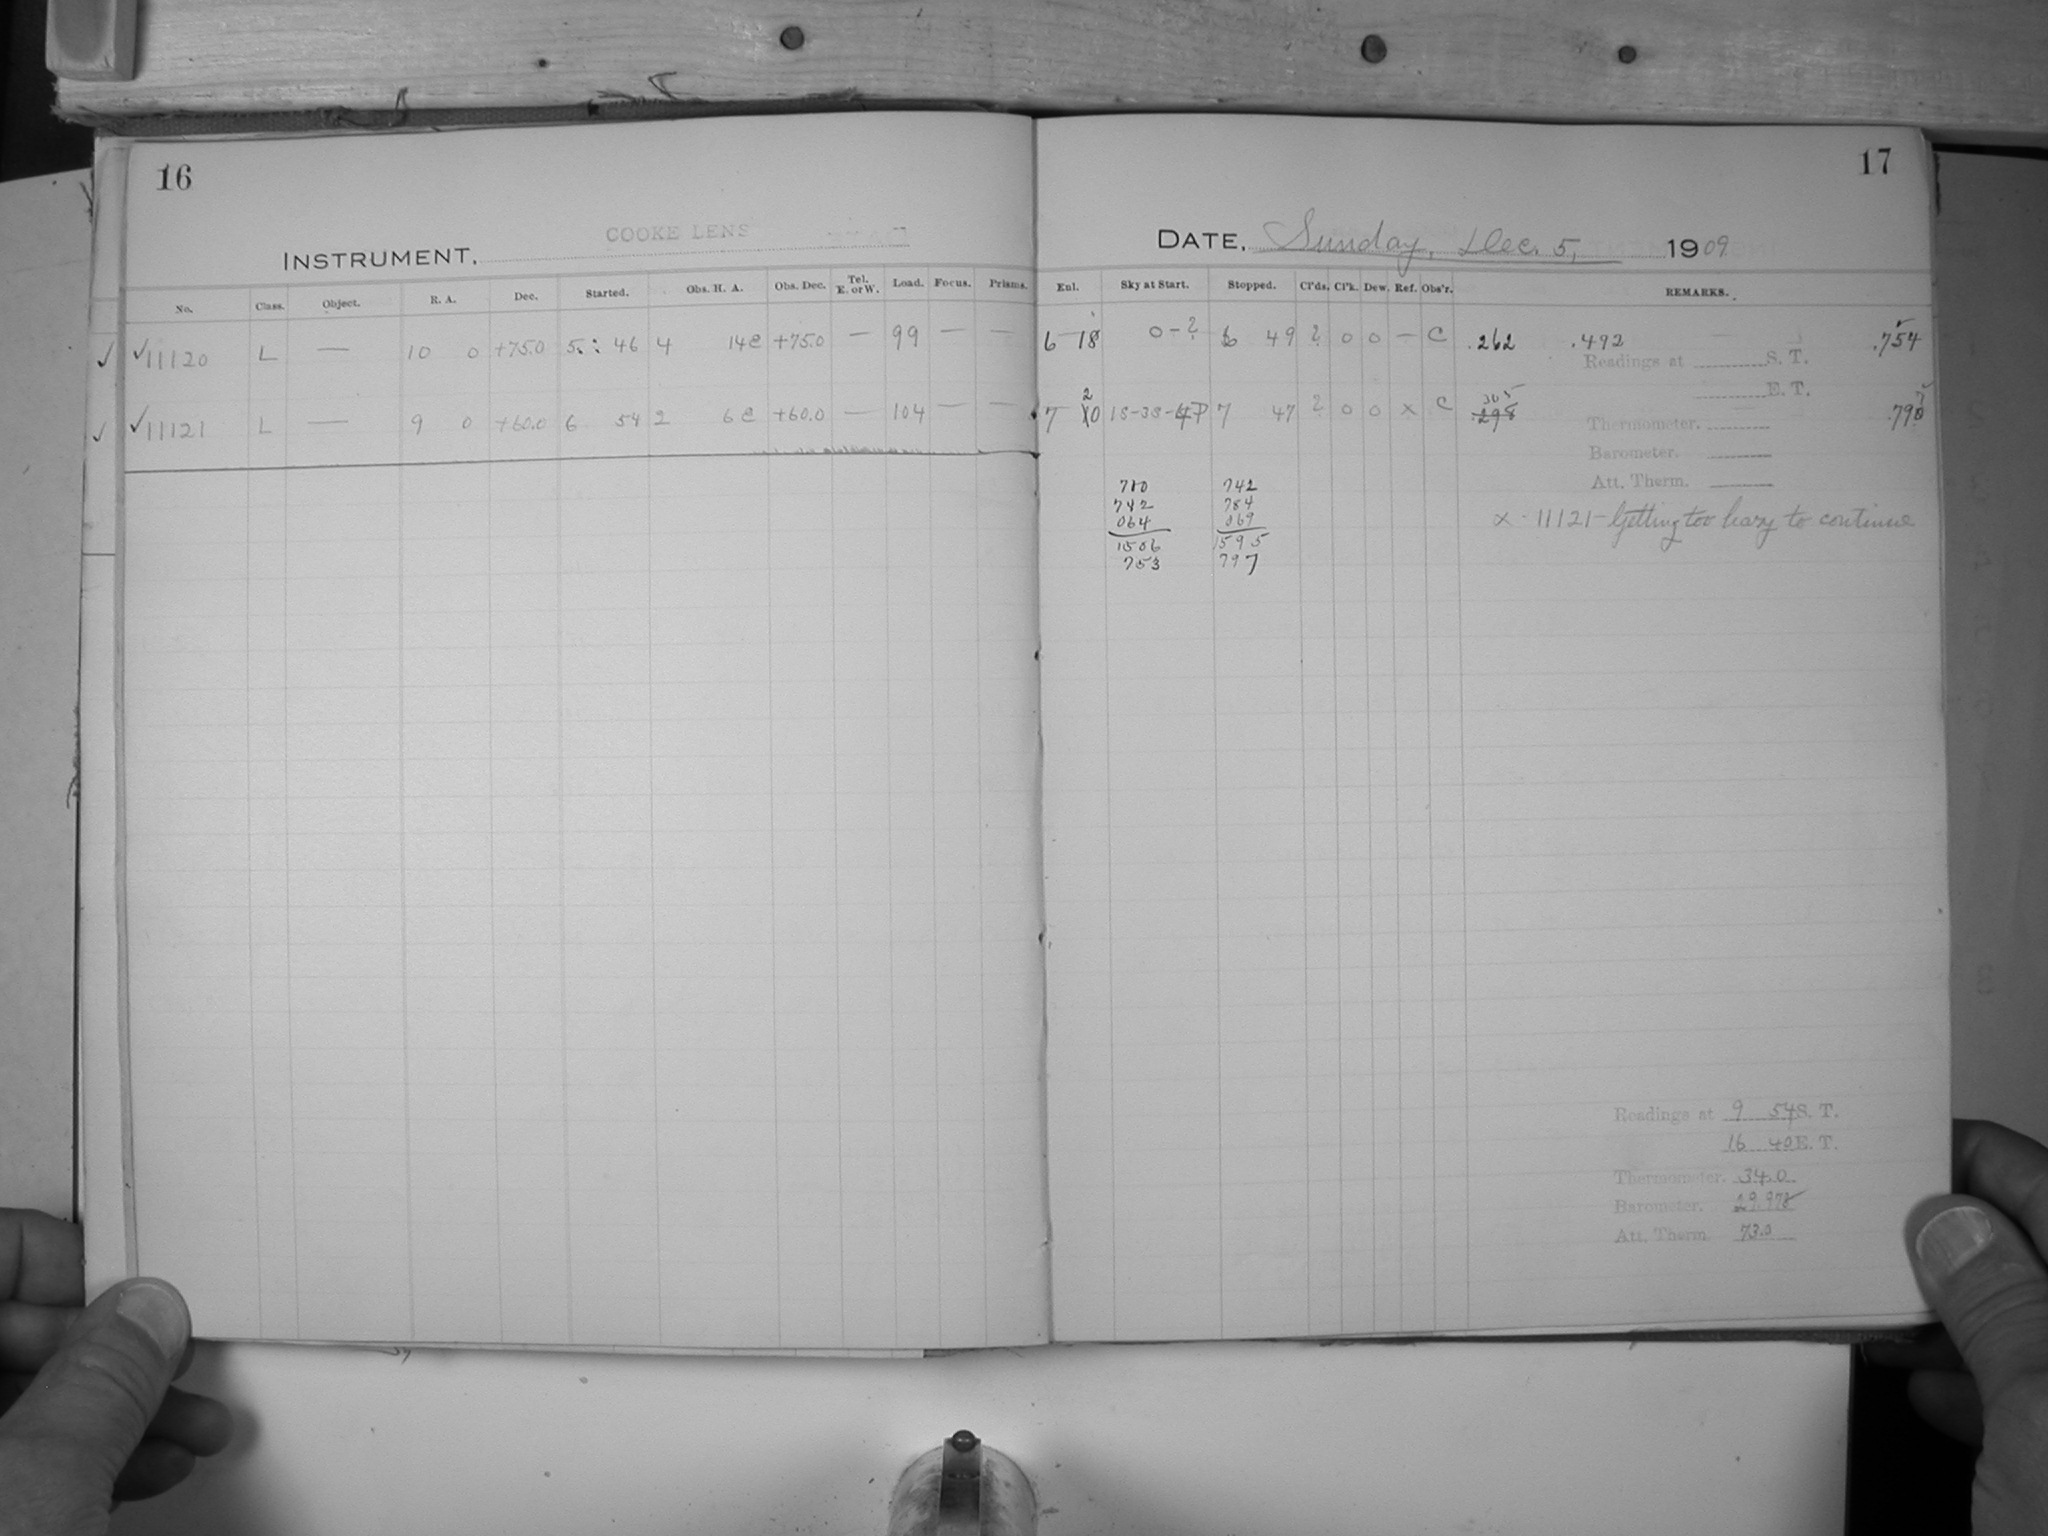 16
INSTRUMENT, COOKE LENS
No. Class. Object. R. A. Dec. Started. Obs. H. A. Obs. Dec. Tel. E. or W. Load. Focus. Prisms.
✓ ✓11120 L — 10 0 +75.0 5: 46 4 14e +75.0 — 99 — —
✓ ✓11121 L — 9 0 +60.0 6 54 2 6e +60.0 — 104 — —
17
DATE, Sunday, Dec. 5, 1909
Enl. Sky at Start. Stopped. Cl'ds. Cl'k. Dew. Ref. Obs'r. REMARKS.
6 18 0-? 6 49 ? 0 0 — C .262 .492 .754
Readings at S. T.
E. T.
7 20 18-38- 7 47 ? 0 0 x C 305
Thermometer.
Barometer.
Att. Therm.
710 742
742 784
064 069
1506 1595
753 797
x - 11121 - Getting too hazy to continue
Readings at 9 54 S. T.
16 40 E. T.
Thermometer. 34.0
Barometer. 29.978
Att. Therm. 73.0